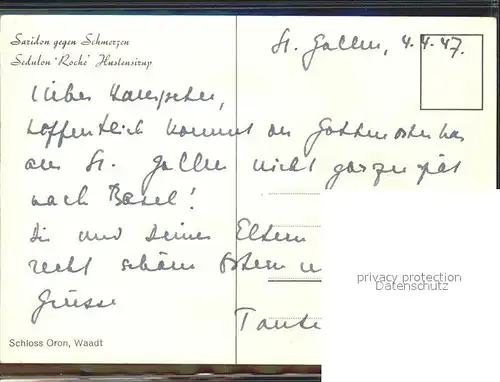 Saridon gegen Schmerzen
Sedulon 'Roche' Hustensirup
St. Gallen, 4.4.47.
Lieber Hanspeter,
hoffentlich kommt der Gottenosterhas
aus St. Gallen nicht gar zu spät
nach Basel!
Dir und Deinen Eltern
recht schöne Ostern u
Grüsse
Tante
privacy protection
Datenschutz
Schloss Oron, Waadt